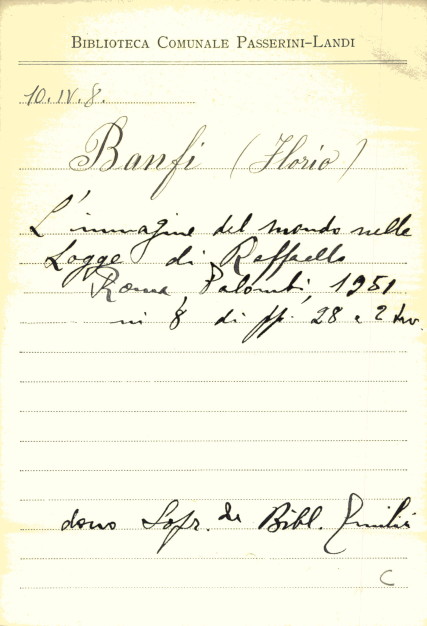 BIBLIOTECA COMUNALE PASSERINI-LANDI
10.IV.8.
Banfi (Florio)
L'immagine del mondo nelle
Logge di Raffaello
Roma, Palombi, 1951
in 8 di pp. 28 e 2 tav.
dono Sopr. da Bibl. Emilia
C